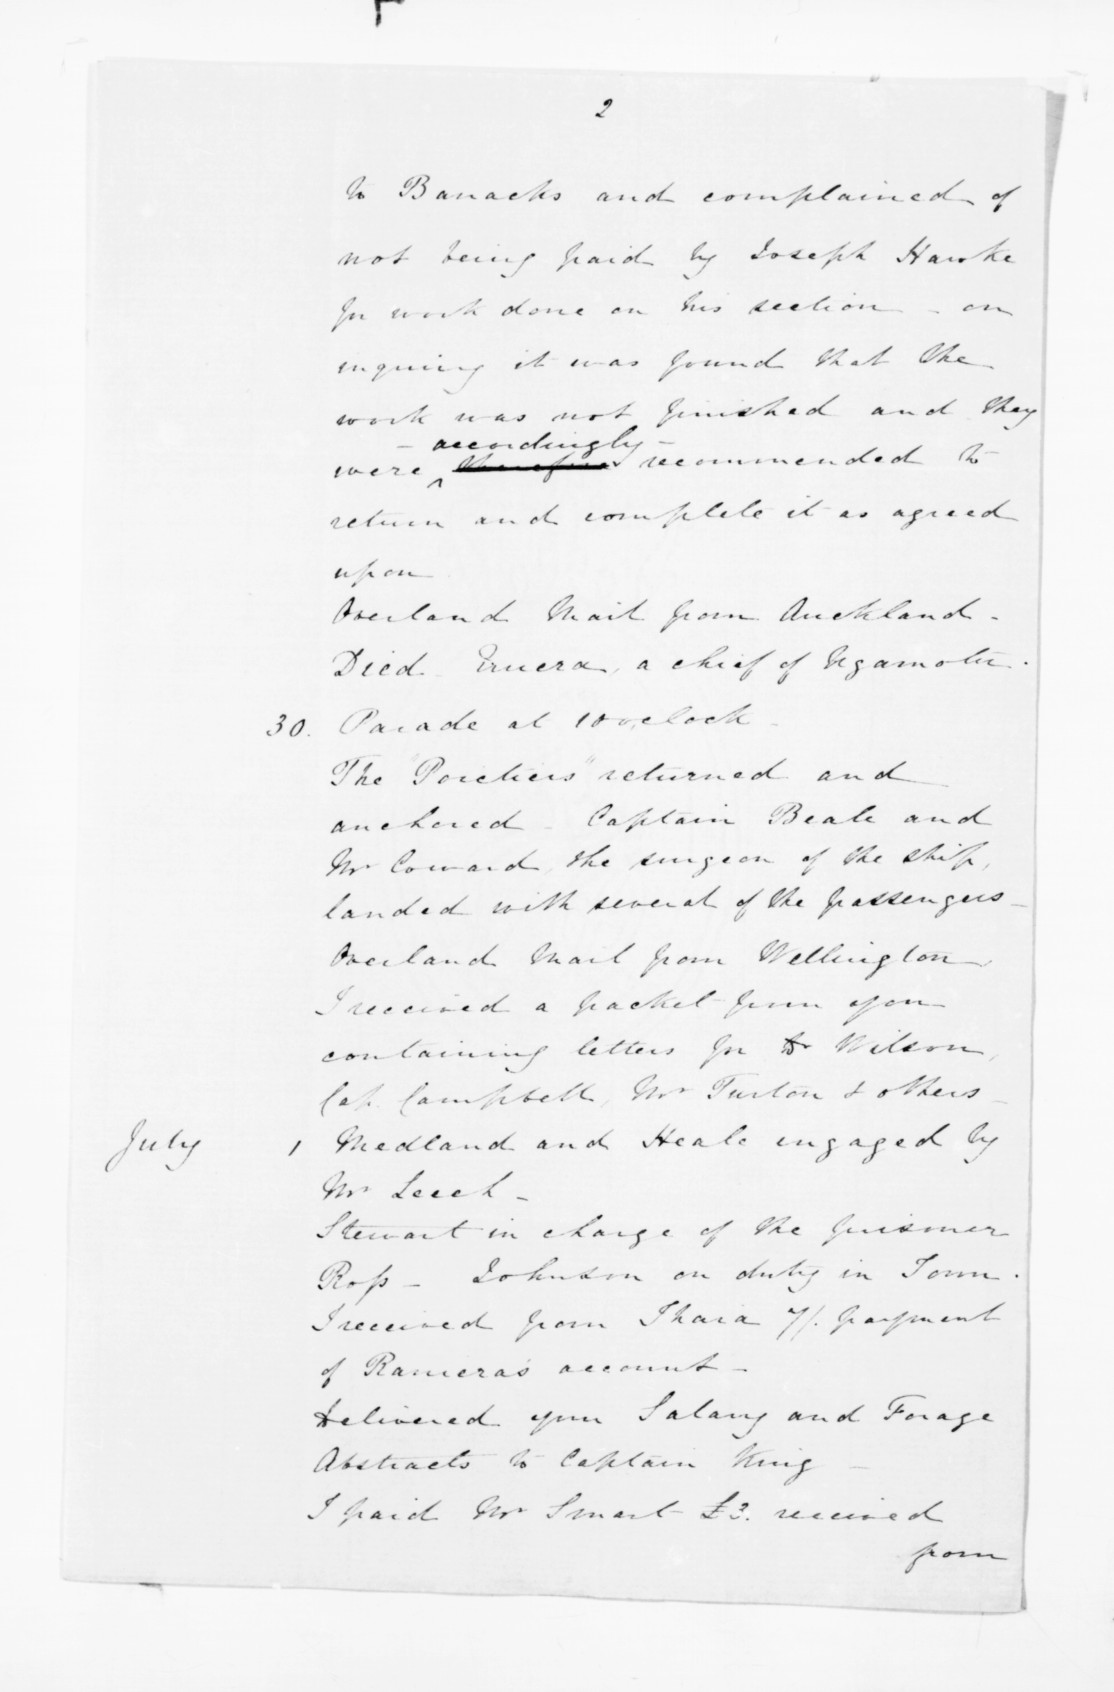 2
to Barracks and complained of
not being paid by Joseph Hawke
for work done on his section - on
inquiry it was found that the
work was not finished and they
- accordingly -
were therefore recommended to
return and complete it as agreed
upon
Overland Mail from Auckland -
Died Eruera, a chief of Ngamotu.
30. Parade at 10 o'clock -
The "Poictiers" returned and
anchored - Captain Beale and
Mr Coward, the surgeon of the ship,
landed with several of the passengers -
Overland Mail from Wellington
I received a packet from you
containing letters for Dr Wilson,
Cap. Campbell, Mr Turton & others -
July 1 Medland and Heale engaged by
Mr Leech -
Stewart in charge of the prisoner
Ross - Johnson on duty in Town.
I received from Ihaia 7/. payment
of Raniera's account -
Delivered your Salary and Forage
Abstracts to Captain King -
I paid Mr Smart £3. received
from